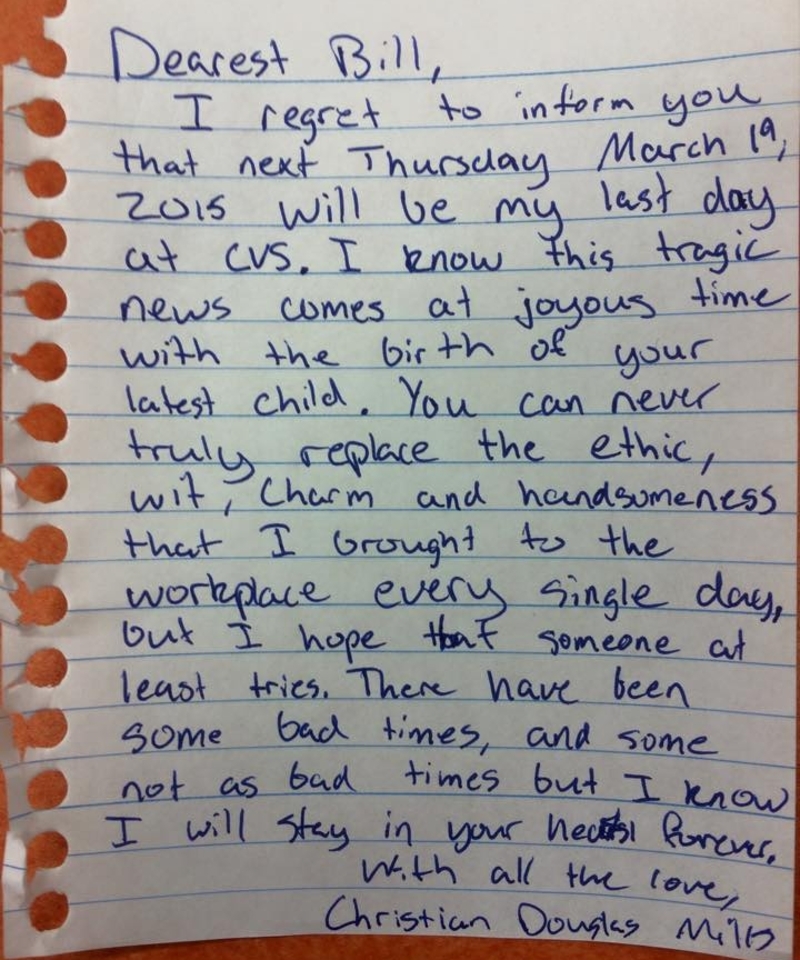 Dearest Bill,
I regret to inform you
that next Thursday March 19,
2015 will be my last day
at CVS. I know this tragic
news comes at joyous time
with the birth of your
latest child. You can never
truly replace the ethic,
wit, Charm and handsomeness
that I brought to the
workplace every single day,
but I hope that someone at
least tries. There have been
some bad times, and some
not as bad times but I know
I will stay in your forever.
With all the love,
Christian Douglas